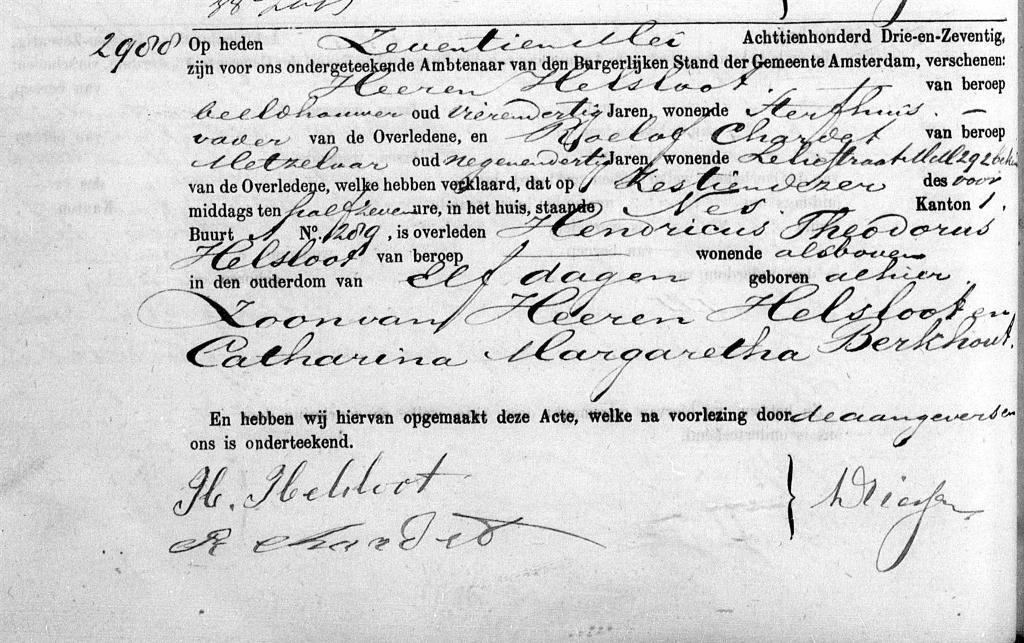 2988 Op heden Zeventien Mei Achttienhonderd Drie-en-Zeventig,
zijn voor ons ondergeteekende Ambtenaar van den Burgerlijken Stand der Gemeente Amsterdam, verschenen:
Heeren Helsloot van beroep
beeldhouwer oud vierendertig Jaren, wonende Sterfhuis
vader van de Overledene, en Roelof Chardet van beroep
Metzelaar oud negenendertig Jaren, wonende Leliestraat 292
van de Overledene, welke hebben verklaard, dat op Zestiendezer des voor
middags ten half zeven ure, in het huis, staande Nes Kanton 1,
Buurt A No. 1289, is overleden Hendricus Theodorus
Helsloot van beroep wonende alsboven
in den ouderdom van Elf dagen geboren alhier
Zoon van Heeren Helsloot en
Catharina Margaretha Berkhout.
En hebben wij hiervan opgemaakt deze Acte, welke na voorlezing door de aangevers en
ons is onderteekend.
H. Helsloot
R Chardet